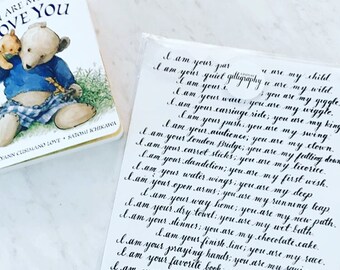 I ARE MY
LOVE YOU
YANN CUSIMANO LOVE • SATOMI ICHIKAWA
I am your par u are my child
I am your quiet calligraphy u are my wild
I am your you are my
I am your wave; you are my giggle
I am your carriage ride; you are my king
I am your push; you are my swing
I am your audience; you are my clown
I am your London bridge; you are my falling down
I am your carrot sticks; you are my licorice.
I am your dandelion; you are my first wish.
I am your water wings; you are my deep
I am your open arms; you are my running leap
I am your way home; you are my new path.
I am your dry towel; you are my wet bath
I am your dinner; you are my chocolate cake.
I am your finish line; you are my race.
I am your praying hands; you are my
I am your favorite book;